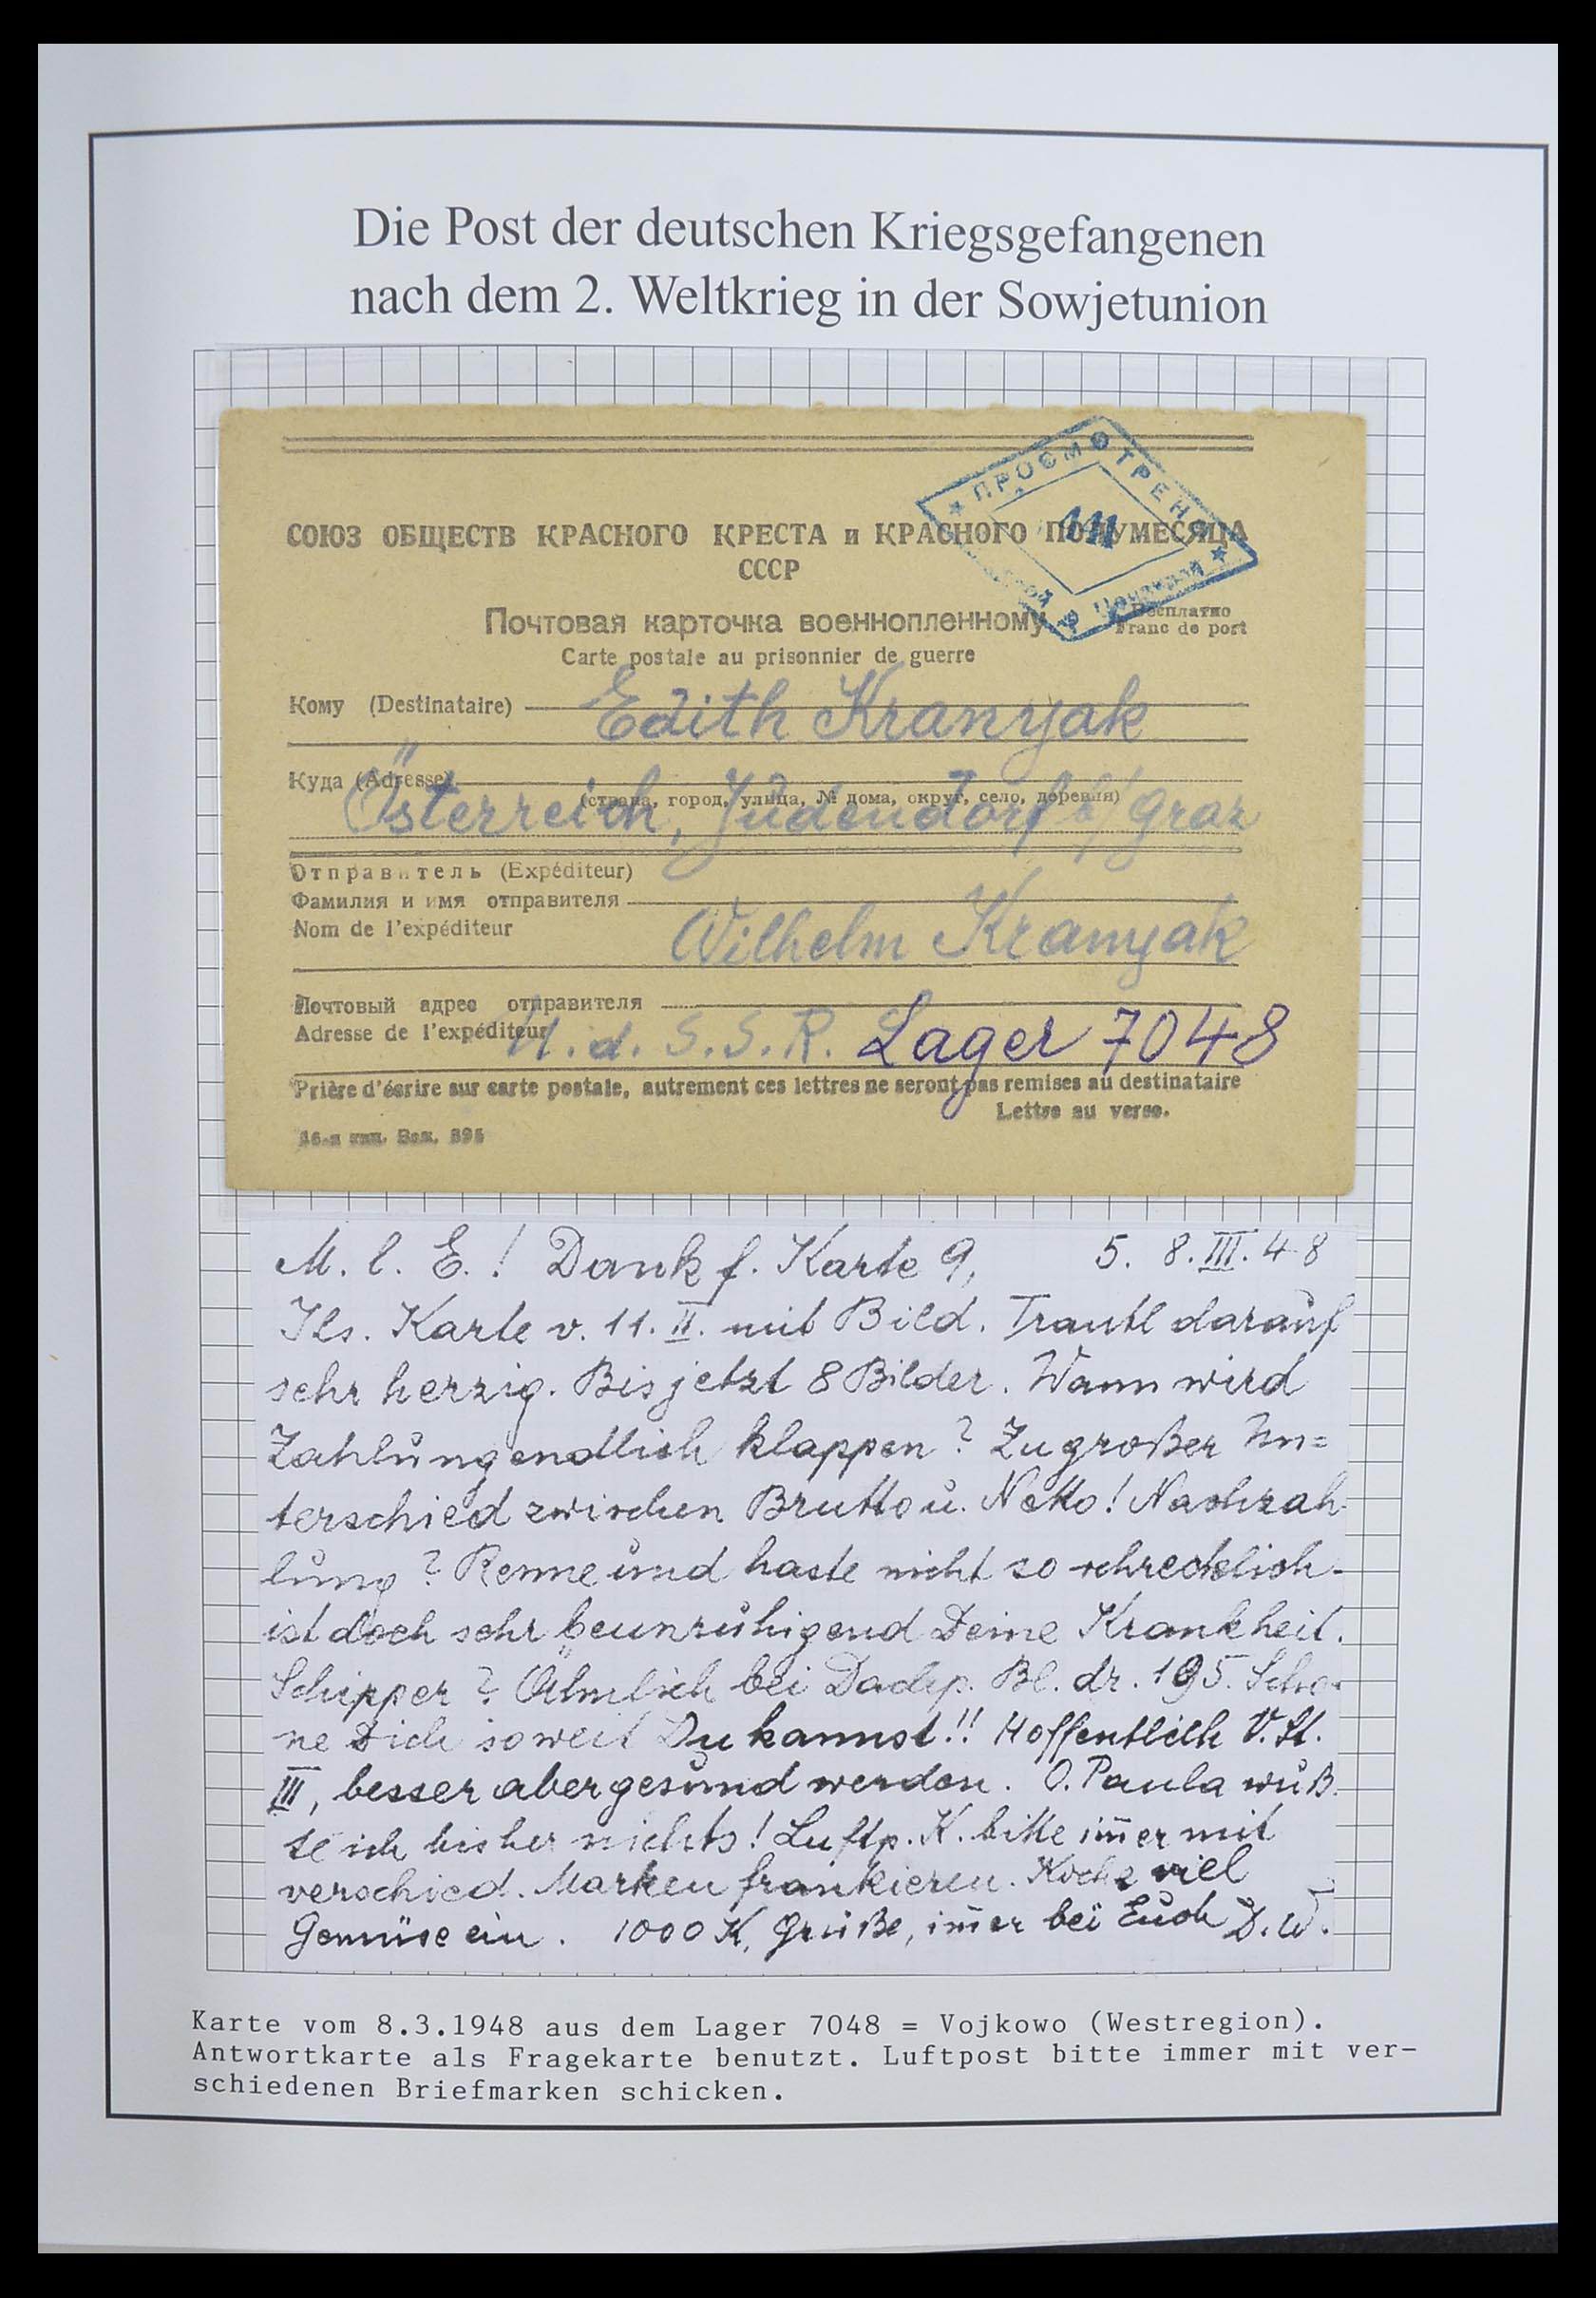 Die Post der deutschen Kriegsgefangenen
nach dem 2. Weltkrieg in der Sowjetunion
ПРОСМОТРЕНО
СОЮЗ ОБЩЕСТВ КРАСНОГО КРЕСТА и КРАСНОГО ПОЛУМЕСЯЦА
СССР
Почтовая карточка военнопленному
Бесплатно
Franc de port
Carte postale au prisonnier de guerre
Кому (Destinataire) Edith Kranyak
Куда (Adresse)
(страна, город, улица, № дома, округ, село, деревня)
Österreich, Judendorf b/ Graz
Отправитель (Expéditeur)
Фамилия и имя отправителя
Nom de l'expéditeur Wilhelm Kranyak
Почтовый адрес отправителя
Adresse de l'expéditeur U.d.S.S.R. Lager 7048
Prière d'écrire sur carte postale, autrement ces lettres ne seront pas remises au destinataire
Lettre au verso.
M. l. E.! Dank f. Karte 9, 5. 8.III.48
Ils. Karte v. 11.II. mit Bild. Trautl darauf
sehr herzig. Bis jetzt 8 Bilder. Wann wird
Zahlung endlich klappen? Zu großer Un=
terschied zwischen Brutto u. Netto! Nachzah-
lung? Renne und haste nicht so schrecklich -
ist doch sehr beunruhigend Deine Krankheit.
Schipper? Ähnlich bei Bl. dr. 195. Scho-
ne Dich soweit Du kannst!! Hoffentlich V. St.
III, besser aber gesund werden. O. Paula wuß-
te ich bisher nichts! Luftp. K. bitte im̄er mit
verschied. Marken frankieren. Koche viel
Gemüse ein. 1000 K, Grüße, im̄er bei Euch D.W.
Karte vom 8.3.1948 aus dem Lager 7048 = Vojkowo (Westregion).
Antwortkarte als Fragekarte benutzt. Luftpost bitte immer mit ver-
schiedenen Briefmarken schicken.